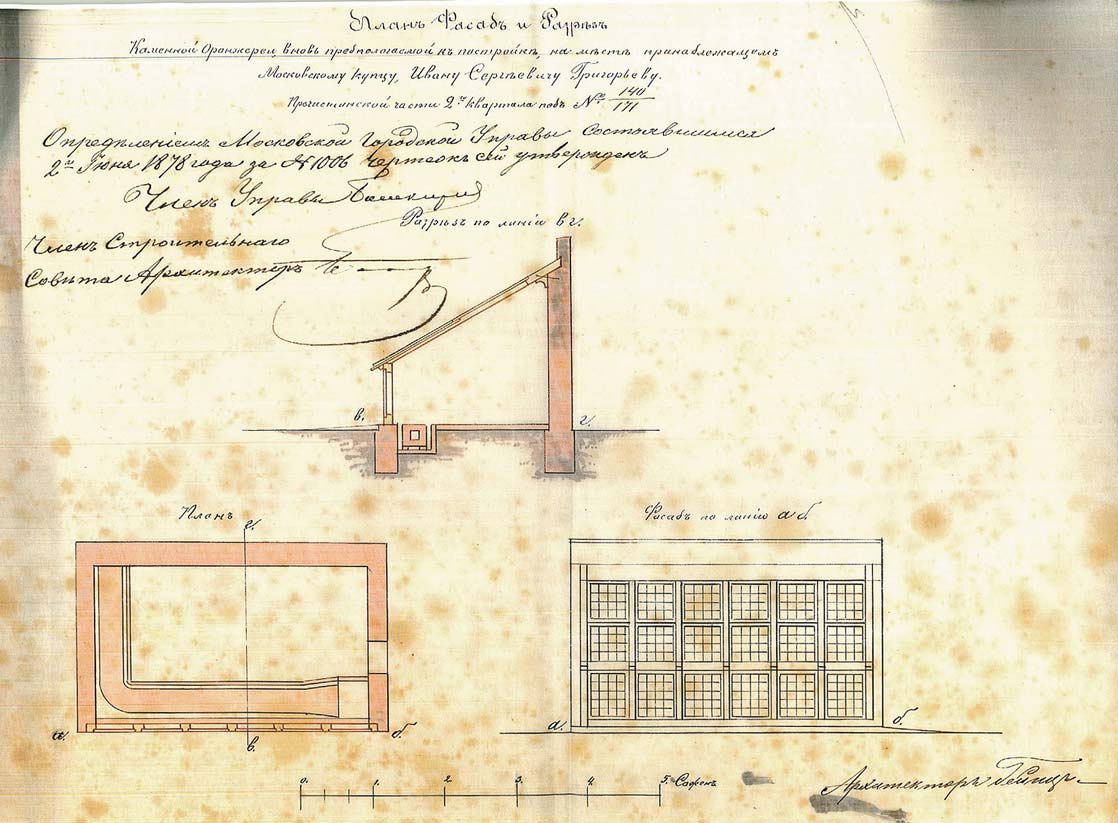 Планъ Фасадъ и Разрѣзъ
Каменной Оранжереи, вновь предполагаемой къ постройкѣ, на мѣстѣ принадлежащемъ
Московскому купцу, Ивану Сергѣевичу Григорьеву.
Пречистинской части 2го квартала подъ № 140/171
Опредѣленіемъ Московской Городской Управы состоявшимся
2го Іюня 1878 года за № 1006 чертежъ сей утвержденъ
Членъ Управы
Разрѣзъ по линіи в г.
Членъ Строительнаго
Совѣта Архитекторъ
в.
г.
Планъ
г.
Фасадъ по линіи а б.
а.
в.
б.
а.
б.
0. 1. 2 3. 4. 5. Сажень
Архитекторъ